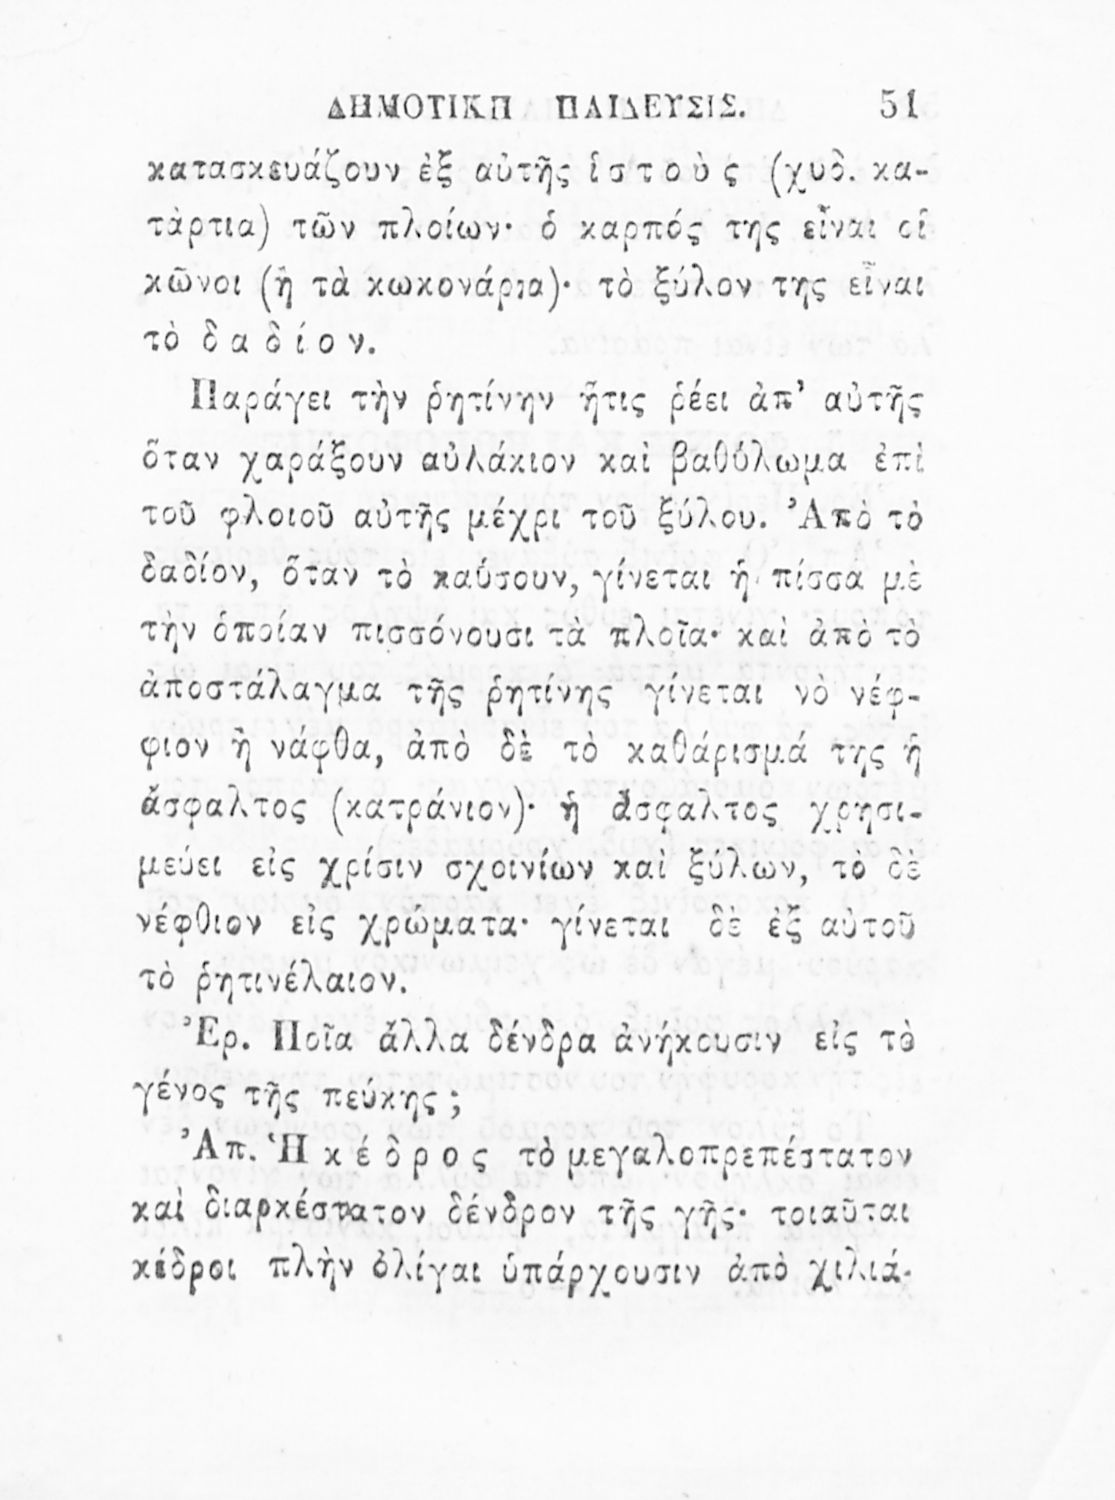 ΔΗΜΟΤΙΚΗ ΠΑΙΔΕΥΣΙΣ. 51
κατασκευάζουν ἐξ αὐτῆς ἱστοὺς (χυδ. κα-
τὰρτια) τῶν πλοίων· ὁ καρπός της εἶναι οἱ
κῶνοι (ἢ τὰ κωκονάρια)· τὸ ξύλον της εἶναι
τὸ δαδίον.
Παράγει τὴν ῥητίνην ἥτις ῥέει ἀπ’ αὐτῆς
ὅταν χαράξουν αὐλάκιον καὶ βαθύλωμα ἐπὶ
τοῦ φλοιοῦ αὐτῆς μέχρι τοῦ ξύλου. Ἀπὸ τὸ
δαδίον, ὅταν τὸ καύσουν, γίνεται ἡ πίσσα μὲ
τὴν ὁποίαν πισσόνουσι τὰ πλοῖα· καὶ ἀπὸ τὸ
ἀποστάλαγμα τῆς ῥητίνης γίνεται νὸ νέφ-
φιον ἢ νάφθα, ἀπὸ δὲ τὸ καθάρισμά της ἡ
ἄσφαλτος (κατράνιον)· ἡ ἄσφαλτος χρησι-
μεύει εἰς χρίσιν σχοινίων καὶ ξύλων, τὸ δὲ
νέφθιον εἰς χρώματα· γίνεται δὲ ἐξ αὐτοῦ
τὸ ῥητινέλαιον.
Ἐρ. Ποῖα ἄλλα δένδρα ἀνήκουσιν εἰς τὸ
γένος τῆς πεύκης;
Ἀπ. Ἡ κέδρος τὸ μεγαλοπρεπέστατον
καὶ διαρκέστατον δένδρον τῆς γῆς· τοιαῦται
κέδροι πλὴν ὀλίγαι ὑπάρχουσιν ἀπὸ χιλιά-